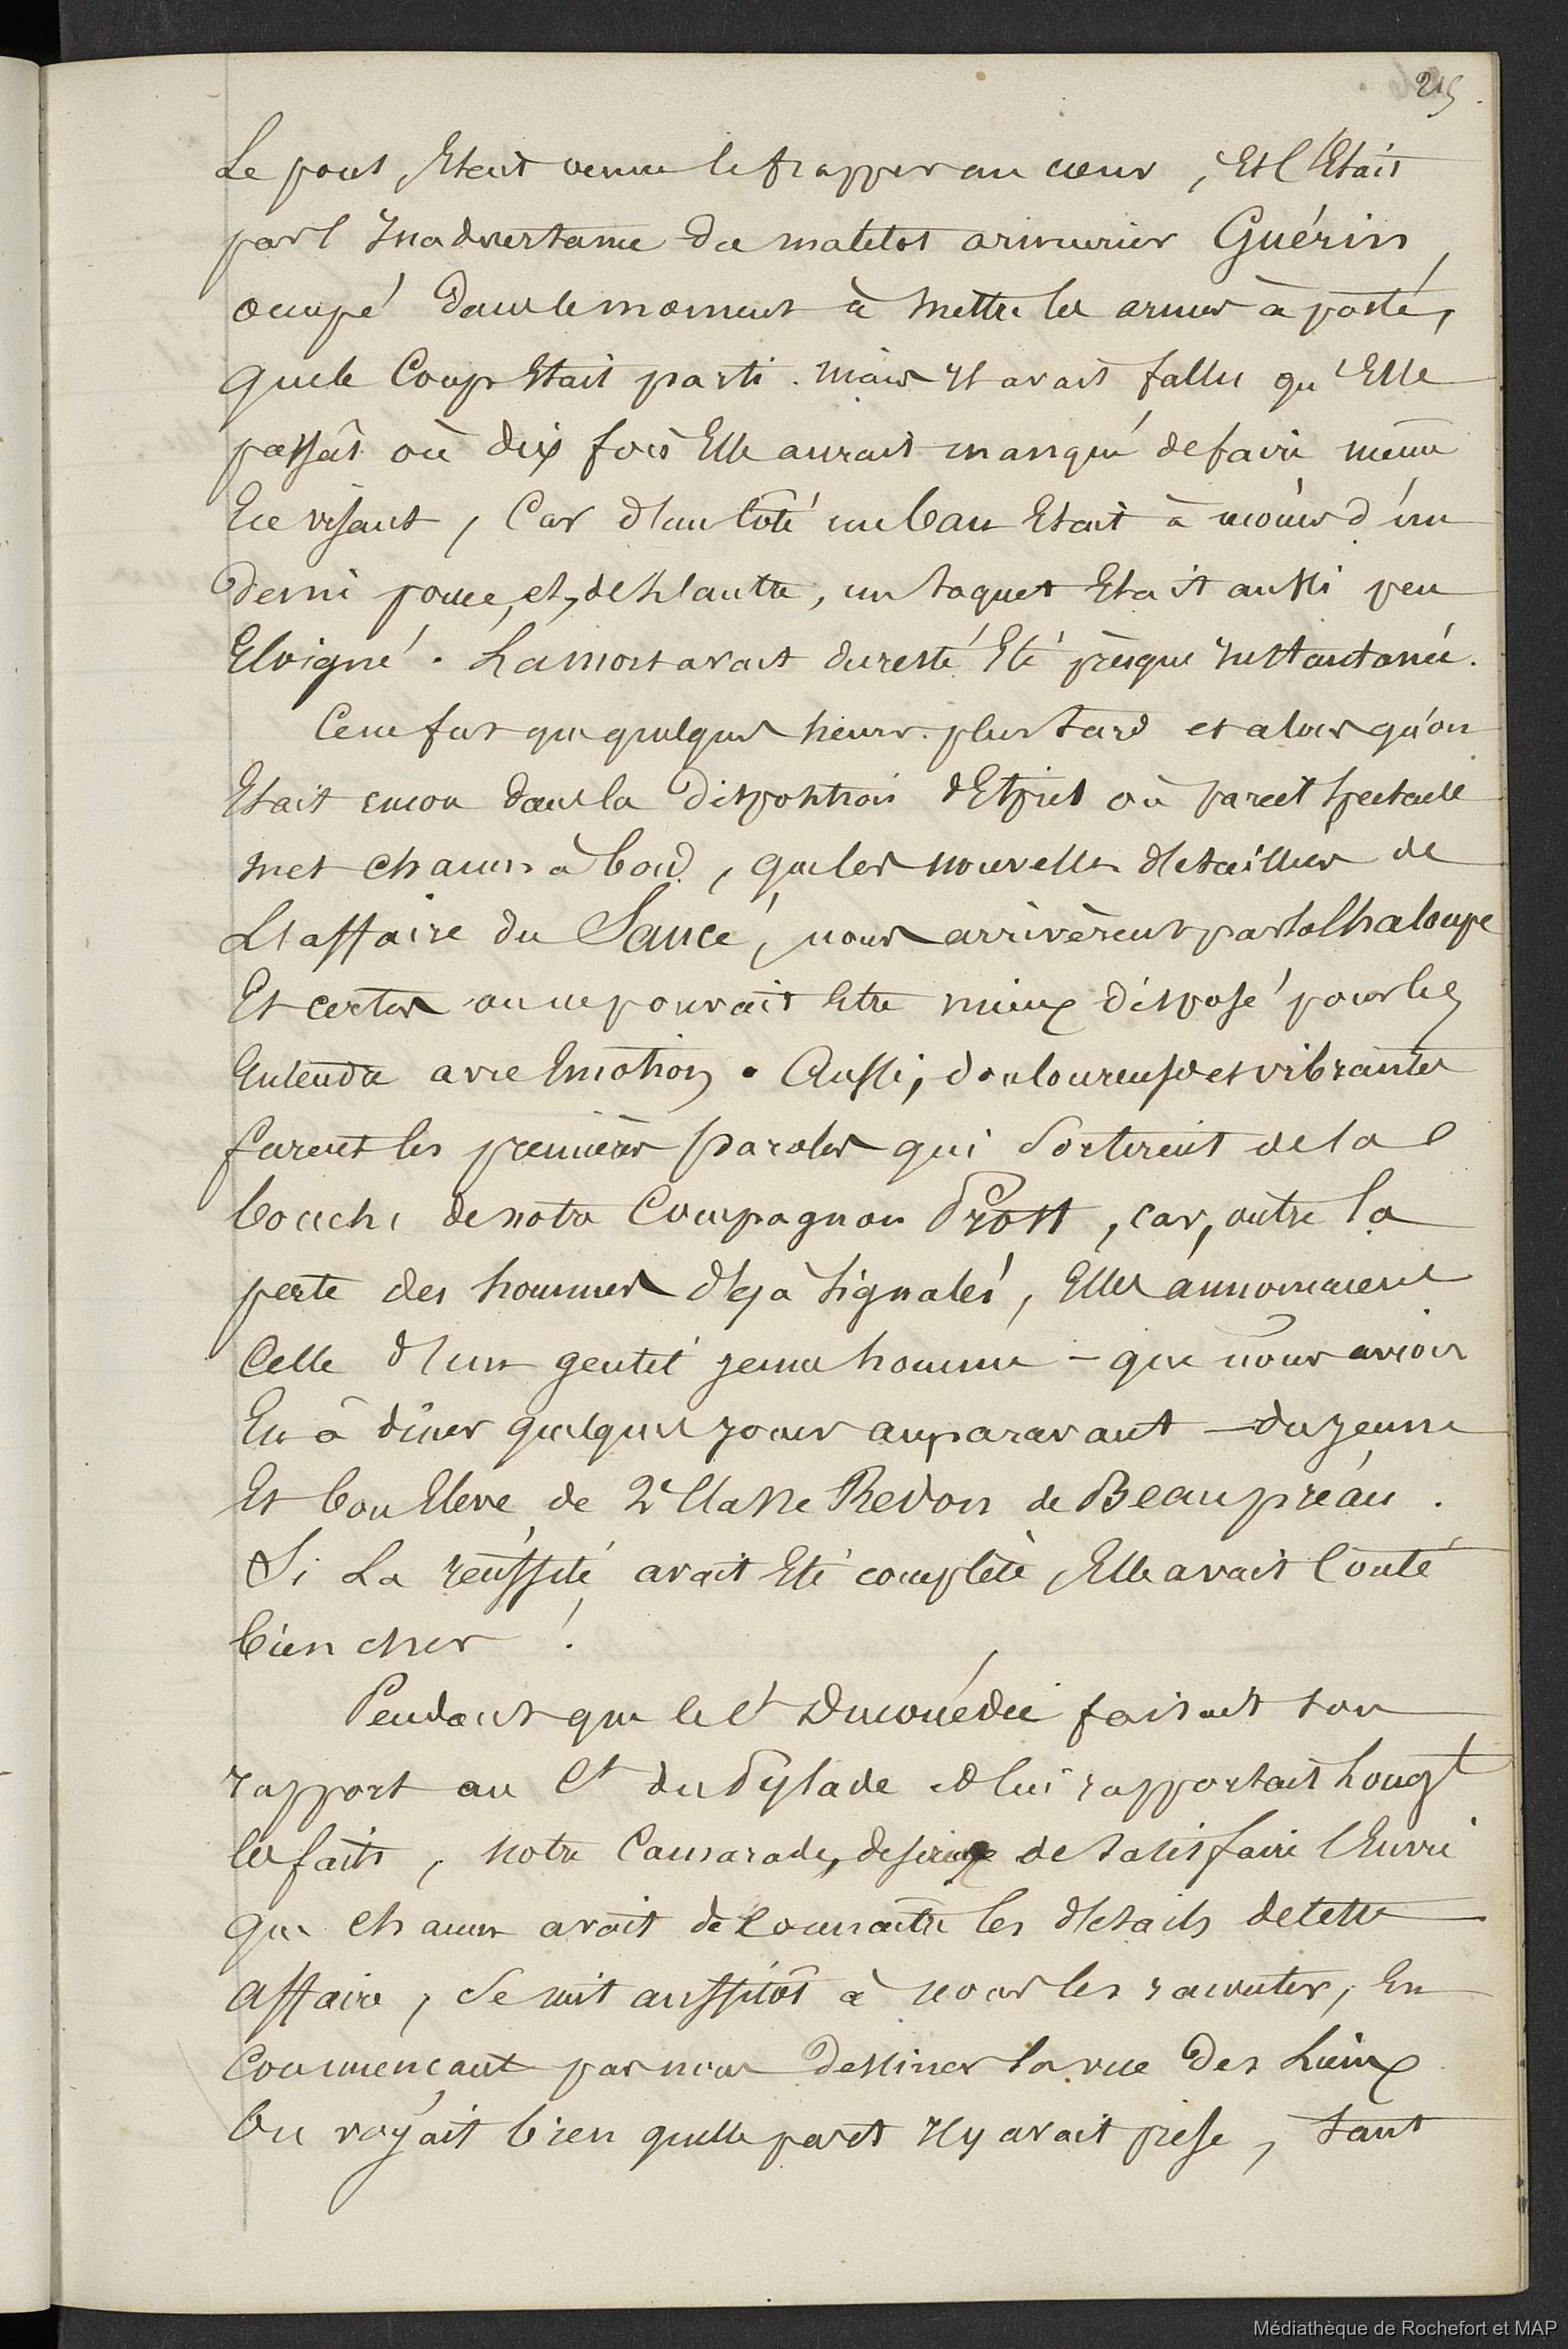 215
Le pont, Etait venue le frapper au cœur, Et C'Etait
par l'Inadvertance du matelot armurier Guérin,
occupé dans le moment à mettre les armes à poste,
que le Coup Etait parti. mais Il avait fallu qu'Elle
passât où dix fois Elle aurait manqué de faire même
En visant, Car d'un Côté un bau Etait à moins d'un
demi pouce, et, de l'autre, un taquet Etait aussi peu
Eloigné. La mort avait du reste Eté presque Instantanée.
Ce ne fut que quelques heures plus tard et alors qu'on
Etait encore dans la disposition d'Esprit où pareil spectacle
met chacun à bord, que les nouvelles détaillées de
L'affaire du Sancé, nous arrivèrent par sa Chaloupe
Et certes on ne pouvait Etre mieux disposé pour les
Entendre avec Emotion. Aussi, douloureuses et vibrantes
furent les premières paroles qui Sortirent de la
bouche de notre Compagnon Prost, car, outre la
perte des hommes déjà signalés, Elles annoncaient
Celle d'un gentil jeune homme - que nous avions
Eu à dîner quelques jours auparavant - du jeune
Et bon Eleve de 2e Classe Redon de Beaupréau.
Si La réussite avait Eté complète, Elle avait Couté
bien cher !
Pendant que le Ct Ducouédic faisait son
rapport au Ct du Pylade et lui rapportait Longt
les faits, notre Camarade, desireux de satisfaire l'Envie
que chacun avait de Connaître les détails de cette
affaire, Se mit aussitôt à nous les raconter, En
Commençant par nous dessiner la vue des Lieux
On voyait bien quelle part Il y avait prise, tant
Médiathèque de Rochefort et MAP